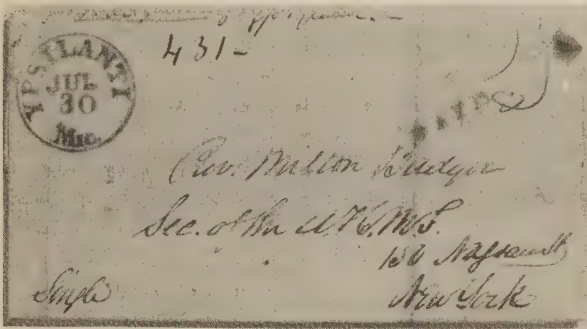 431-
YPSILANTI
JUL
30
Mic.
PAID
Rev. Milton Badger
Sec. of the A.H.M.S.
150 Nassau St
New York
Single